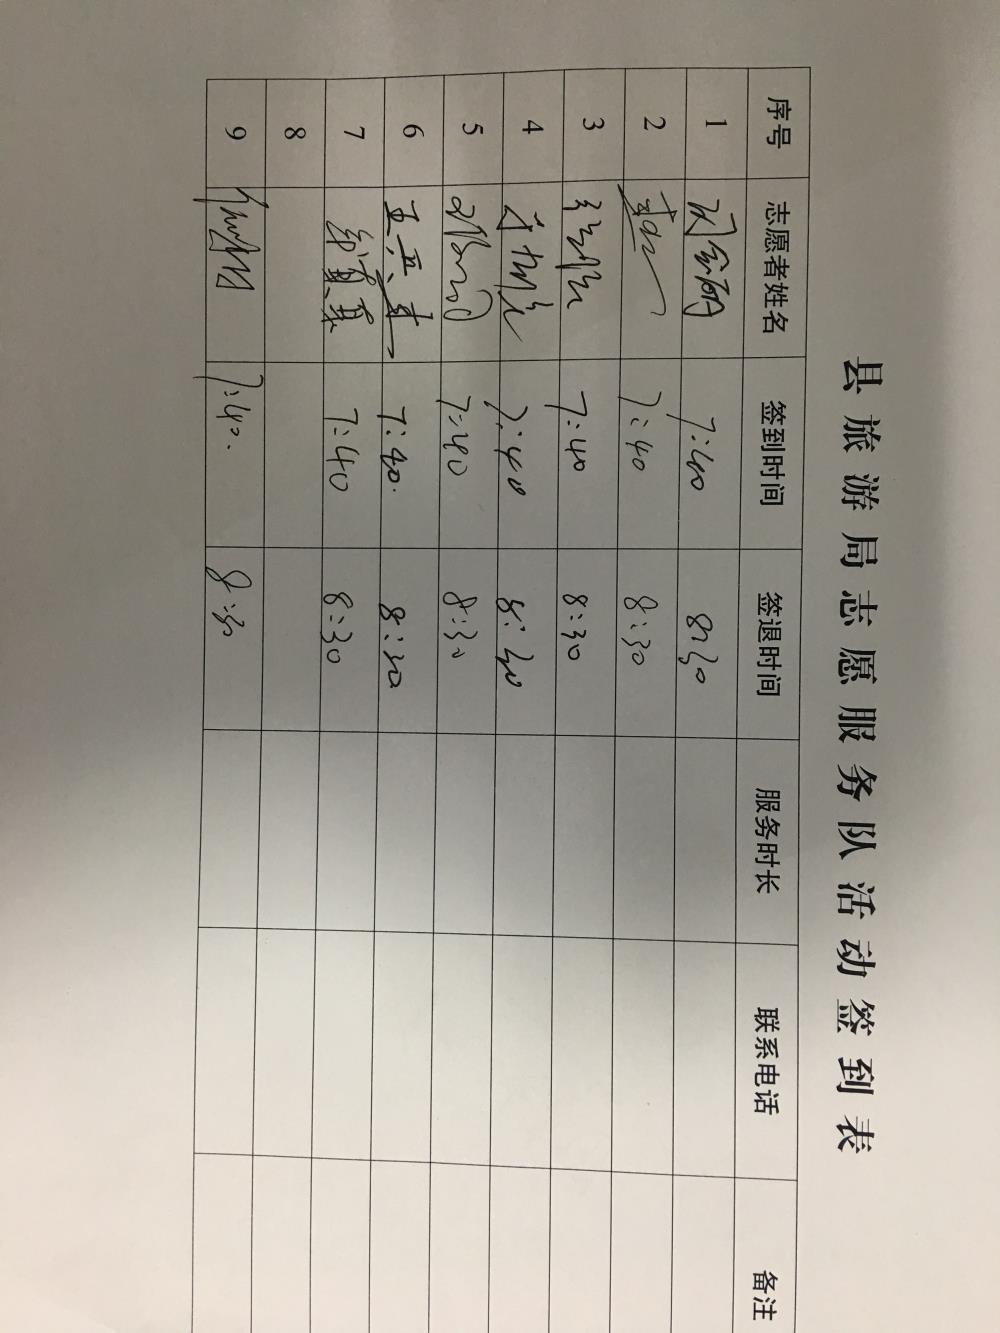 县旅游局志愿服务队活动签到表
序号 志愿者姓名 签到时间 签退时间 服务时长 联系电话 备注
1 7:40 8:30
2 7:40 8:30
3 7:40 8:30
4 7:40 8:30
5 7:40 8:30
6 7:40. 8:30
7 7:40 8:30
8
9 7:40. 8:30